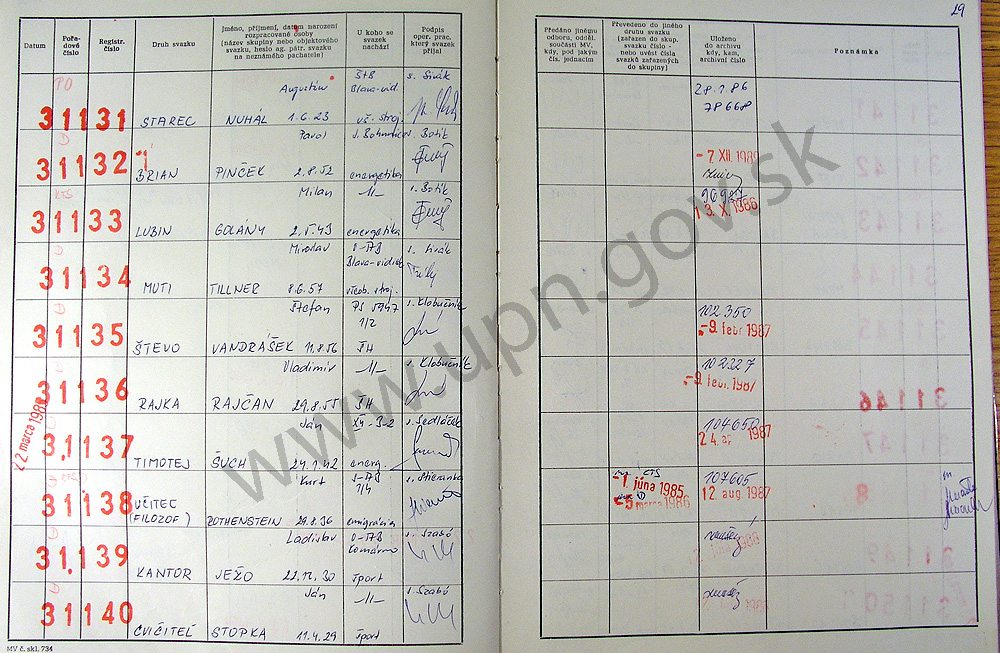 29
Datum
Pořadové číslo
Registr. číslo
Druh svazku
Jméno, příjmení, datum narození
rozpracované osoby
(název skupiny nebo objektového
svazku, heslo ag. pátr. svazku
na neznámého pachatele)
U koho se
svazek
nachází
Podpis
oper. prac.
který svazek
přijal
Předáno jinému
odboru, odděl.
součásti MV,
kdy, pod jakým
čís. jednacím
Převedeno do jiného
druhu svazku
(zařazen do skup.
svazku číslo -
nebo uvést čísla
svazků zařazených
do skupiny)
Uloženo
do archivu
kdy, kam,
archivní číslo
Poznámka
PO
ŠtB s. Sivák
Augustín Blava-vid.
31131 STAREC NUHÁL 1.6.23 vš. stroj.
28.1.86
78668
Pavol s. Botik
31132 BRIAN PINČEK 2.8.52 energetika
-7 XII. 1989
KTS
Milan -11- s. Botik
31133 LUBIN GOLÁNY 2.5.43 energetika
13. X. 1986
D
Miroslav s. Sivák
Blava-vidiek
31134 MUTI TILLNER 8.6.57 všeob. stroj.
D
Štefan PS 5947 s. Klobučník
1/2
31135 ŠTEVO VANDRÁŠEK 11.8.56 ŠH
102350
-9. febr 1987
D
Vladimír -11- s. Klobučník
31136 RAJKA RAJČAN 29.8.55 ŠH
102327
-9. febr. 1987
22 marca 198
Ján XII-3-2 s. Sedláček
31,137 TIMOTEJ ŠUCH 24.1.42 energ.
104650
24. 1987
Kurt s. Stieranka
7/4
31138 UČITEC
(FILOZOF) ROTHENSTEIN 29.8.36 emigrácia
KTS
-1 júna 1985
-5 marca 1986
107605
12. aug 1987
Ladislav O-ŠTB s. Szabó
Komárno
31,139 KANTOR JEŽO 22.11.30 šport
D
Ján -11- s. Szabó
31140 CVIČITEĽ STOPKA 11.4.29 šport
31146
MV č. skl. 734
www.upn.gov.sk